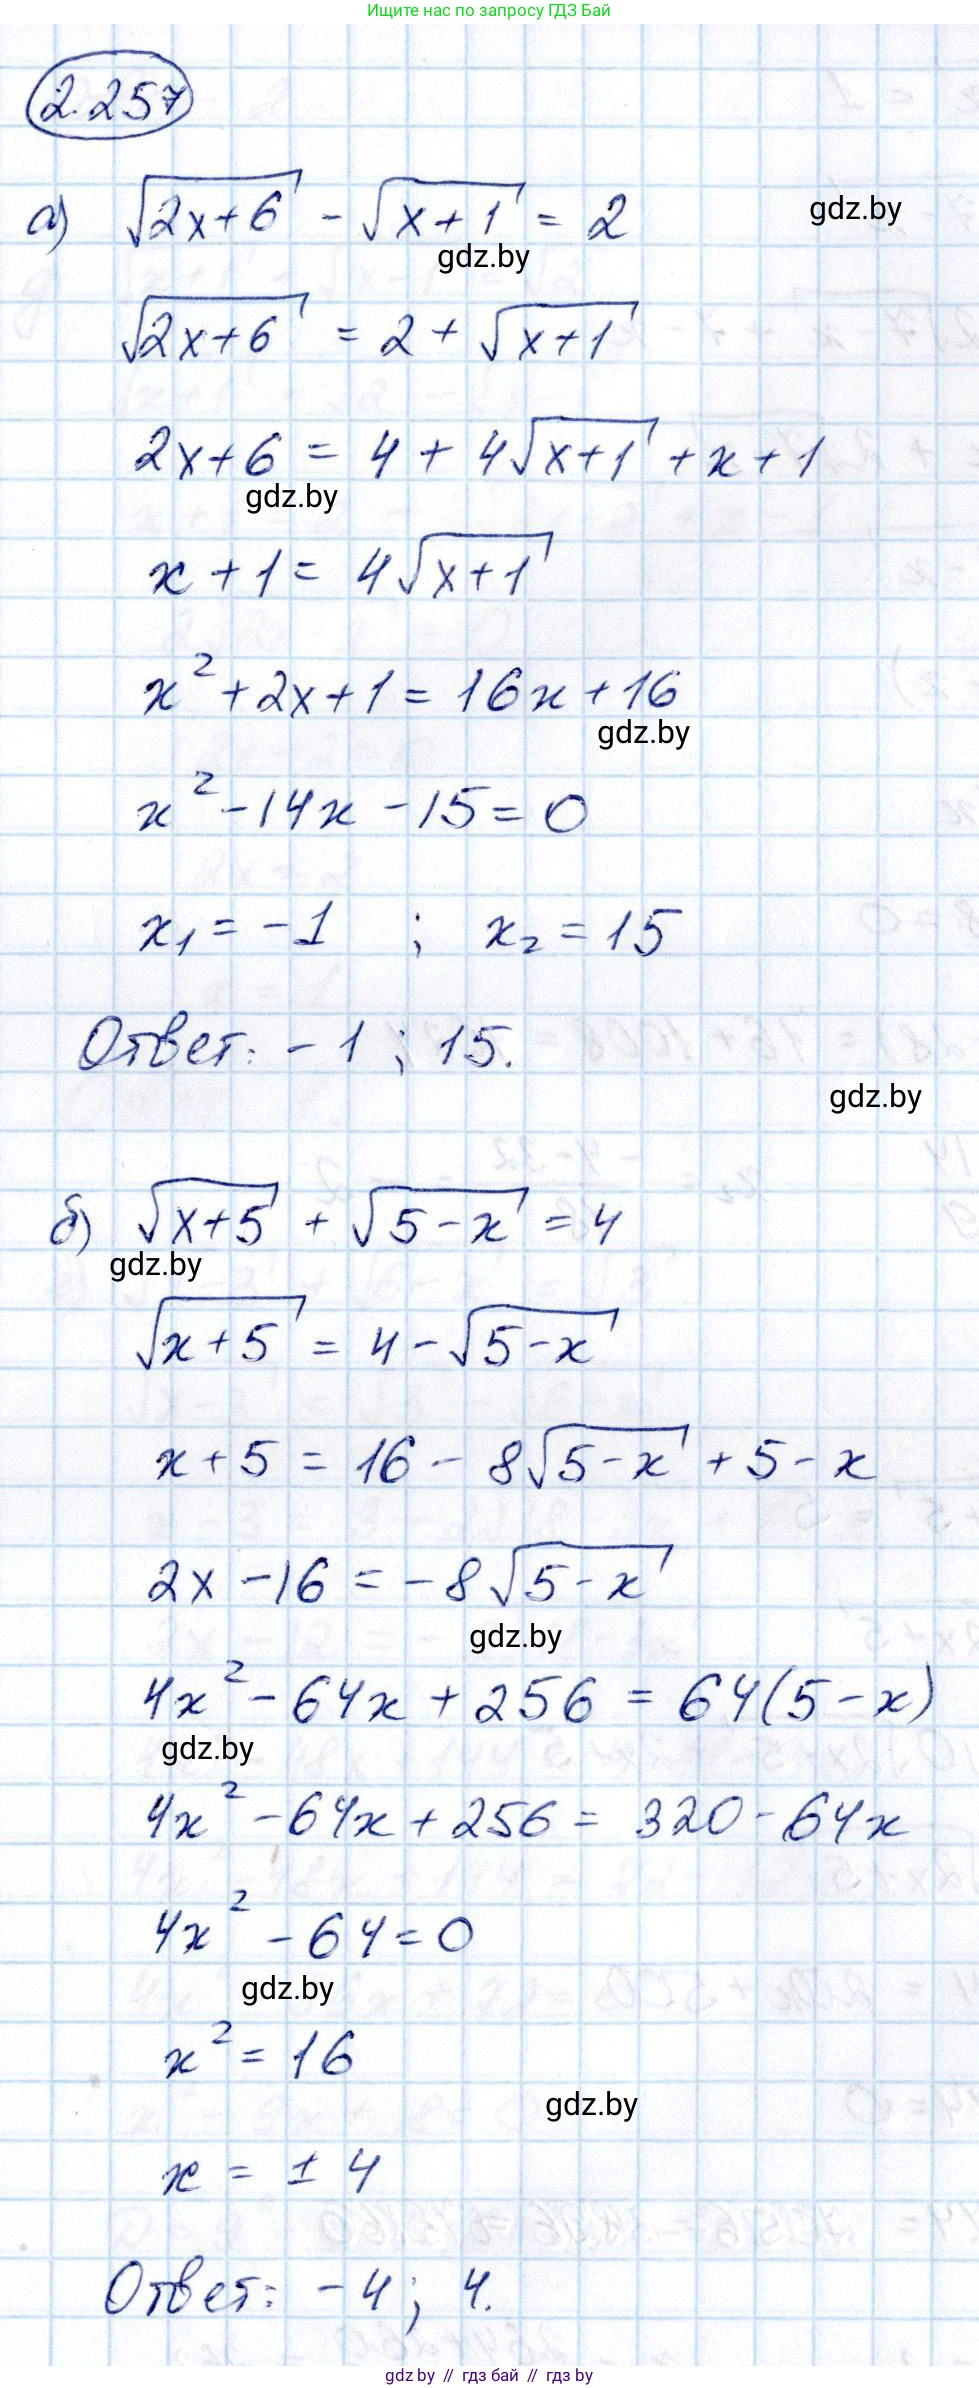 Ищите нас по запросу ГДЗ Бай
2.257
а) √(2x+6) - √(x+1) = 2
gdz.by
gdz.by
√(2x+6) = 2 + √(x+1)
2x+6 = 4 + 4√(x+1) + x + 1
gdz.by
x + 1 = 4√(x+1)
x² + 2x + 1 = 16x + 16
gdz.by
x² - 14x - 15 = 0
x₁ = -1 ; x₂ = 15
Ответ: -1 ; 15.
gdz.by
б) √(x+5) + √(5-x) = 4
gdz.by
√(x+5) = 4 - √(5-x)
x + 5 = 16 - 8√(5-x) + 5 - x
2x - 16 = -8√(5-x)
gdz.by
4x² - 64x + 256 = 64(5-x)
gdz.by
4x² - 64x + 256 = 320 - 64x
4x² - 64 = 0
gdz.by
x² = 16
gdz.by
x = ± 4
Ответ: -4; 4.
gdz.by // гдз бай // гдз by